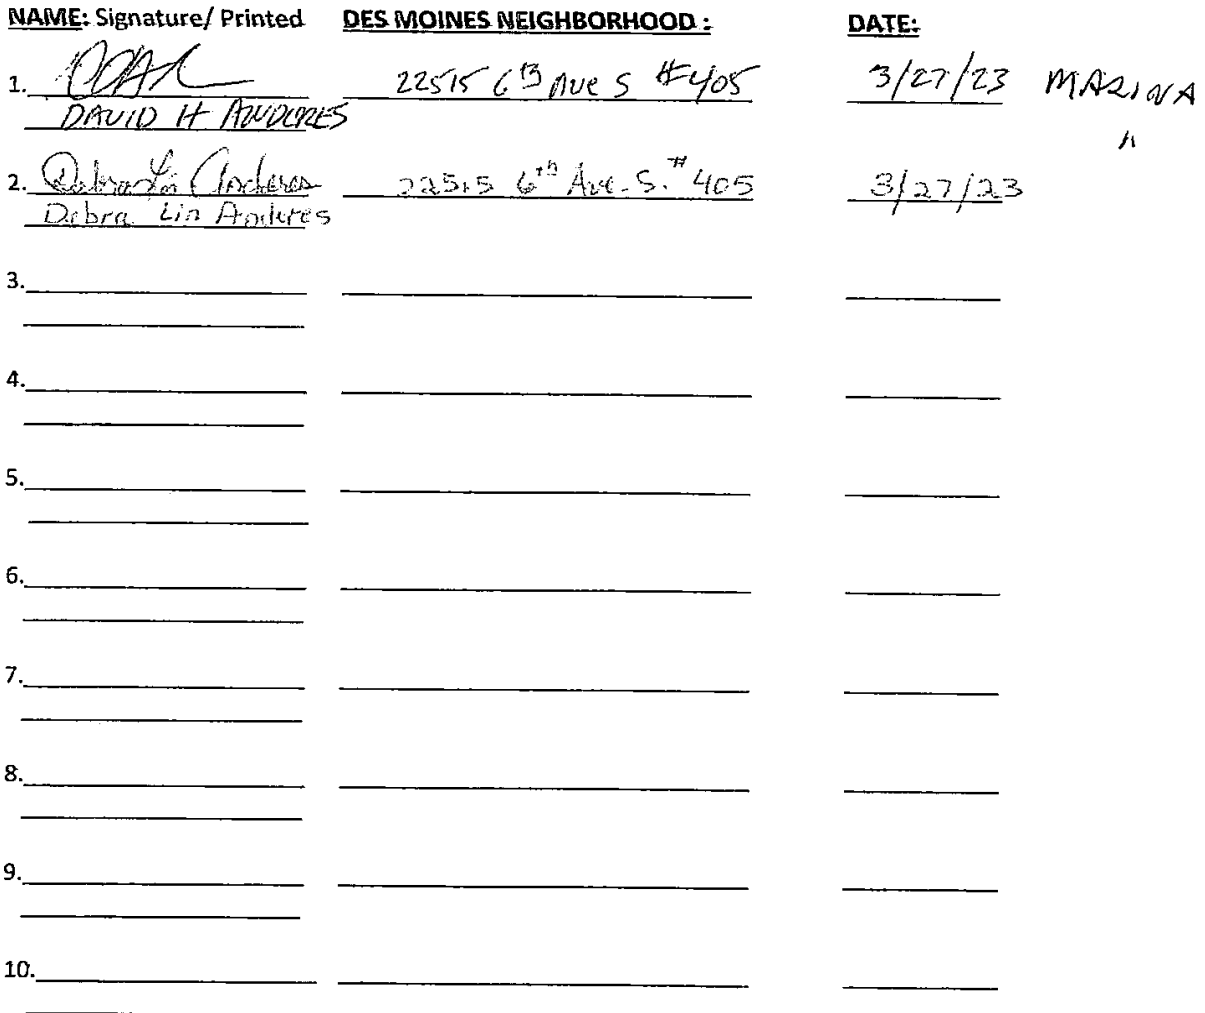 NAME: Signature/ Printed DES MOINES NEIGHBORHOOD : DATE:
1. 22515 6th Ave S #405 3/27/23 MARINA
DAVID H ANDERES "
2. Debra Lin Anderes 22515 6th Ave. S. #405 3/27/23
Debra Lin Anderes
3.
4.
5.
6.
7.
8.
9.
10.